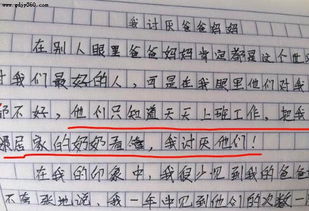 www.gdyjy060.com
我讨厌爸爸妈妈
在别人眼里爸爸妈妈肯定都是这个世
对我们最好的人，可是在我眼里他们对我
都不好，他们只知道天天上班工作，把我
跟居家的奶奶看管，我讨厌他们！
在我的印象中，我很少见到我的爸爸
不夸张地说，我一年中见到他们的次数一